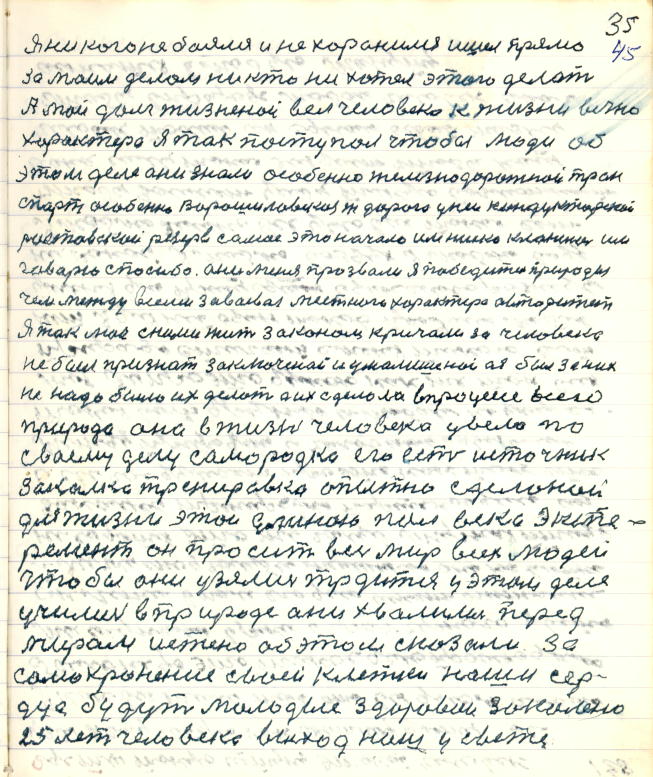 35
45
Я никого не боялся и не хоранился ишел прямо
за моим делом никто ни хотел этого делат
А мой долг жизненой вел человека к жизни вечно
характера Я так поступал чтобы люди об
этом деле ани знали особенно железнодорожной тран
спарт особенно Ворошиловская ж дорога у ней кандукторской
ростовской резерв самое это начало им нико кланился им
гаварю спосибо. ани меня прозвали Я победител природы
чем между всеми заваевал местного характера автодитет
Я так мог снами жит законом кричали за человека
не был признат заключеной и умалишеной а я был за них
не надо было их делат а их сделола впроцесе всего
природа она в жизни человека увела по
своему делу самородка его есть источник
закалка тренировка опытно сделоной
для жизни этой длиною пол века Экспе-
ремент он просит весь мир всех людей
чтобы они узялися трдится у этом деле
училися в природе ани хвалилися перед
мирам истено об этом сказали. За
самохронение своей клетки наши сер-
дца будут молодые здоровыи закалено
25 лет человека выход наш у свете